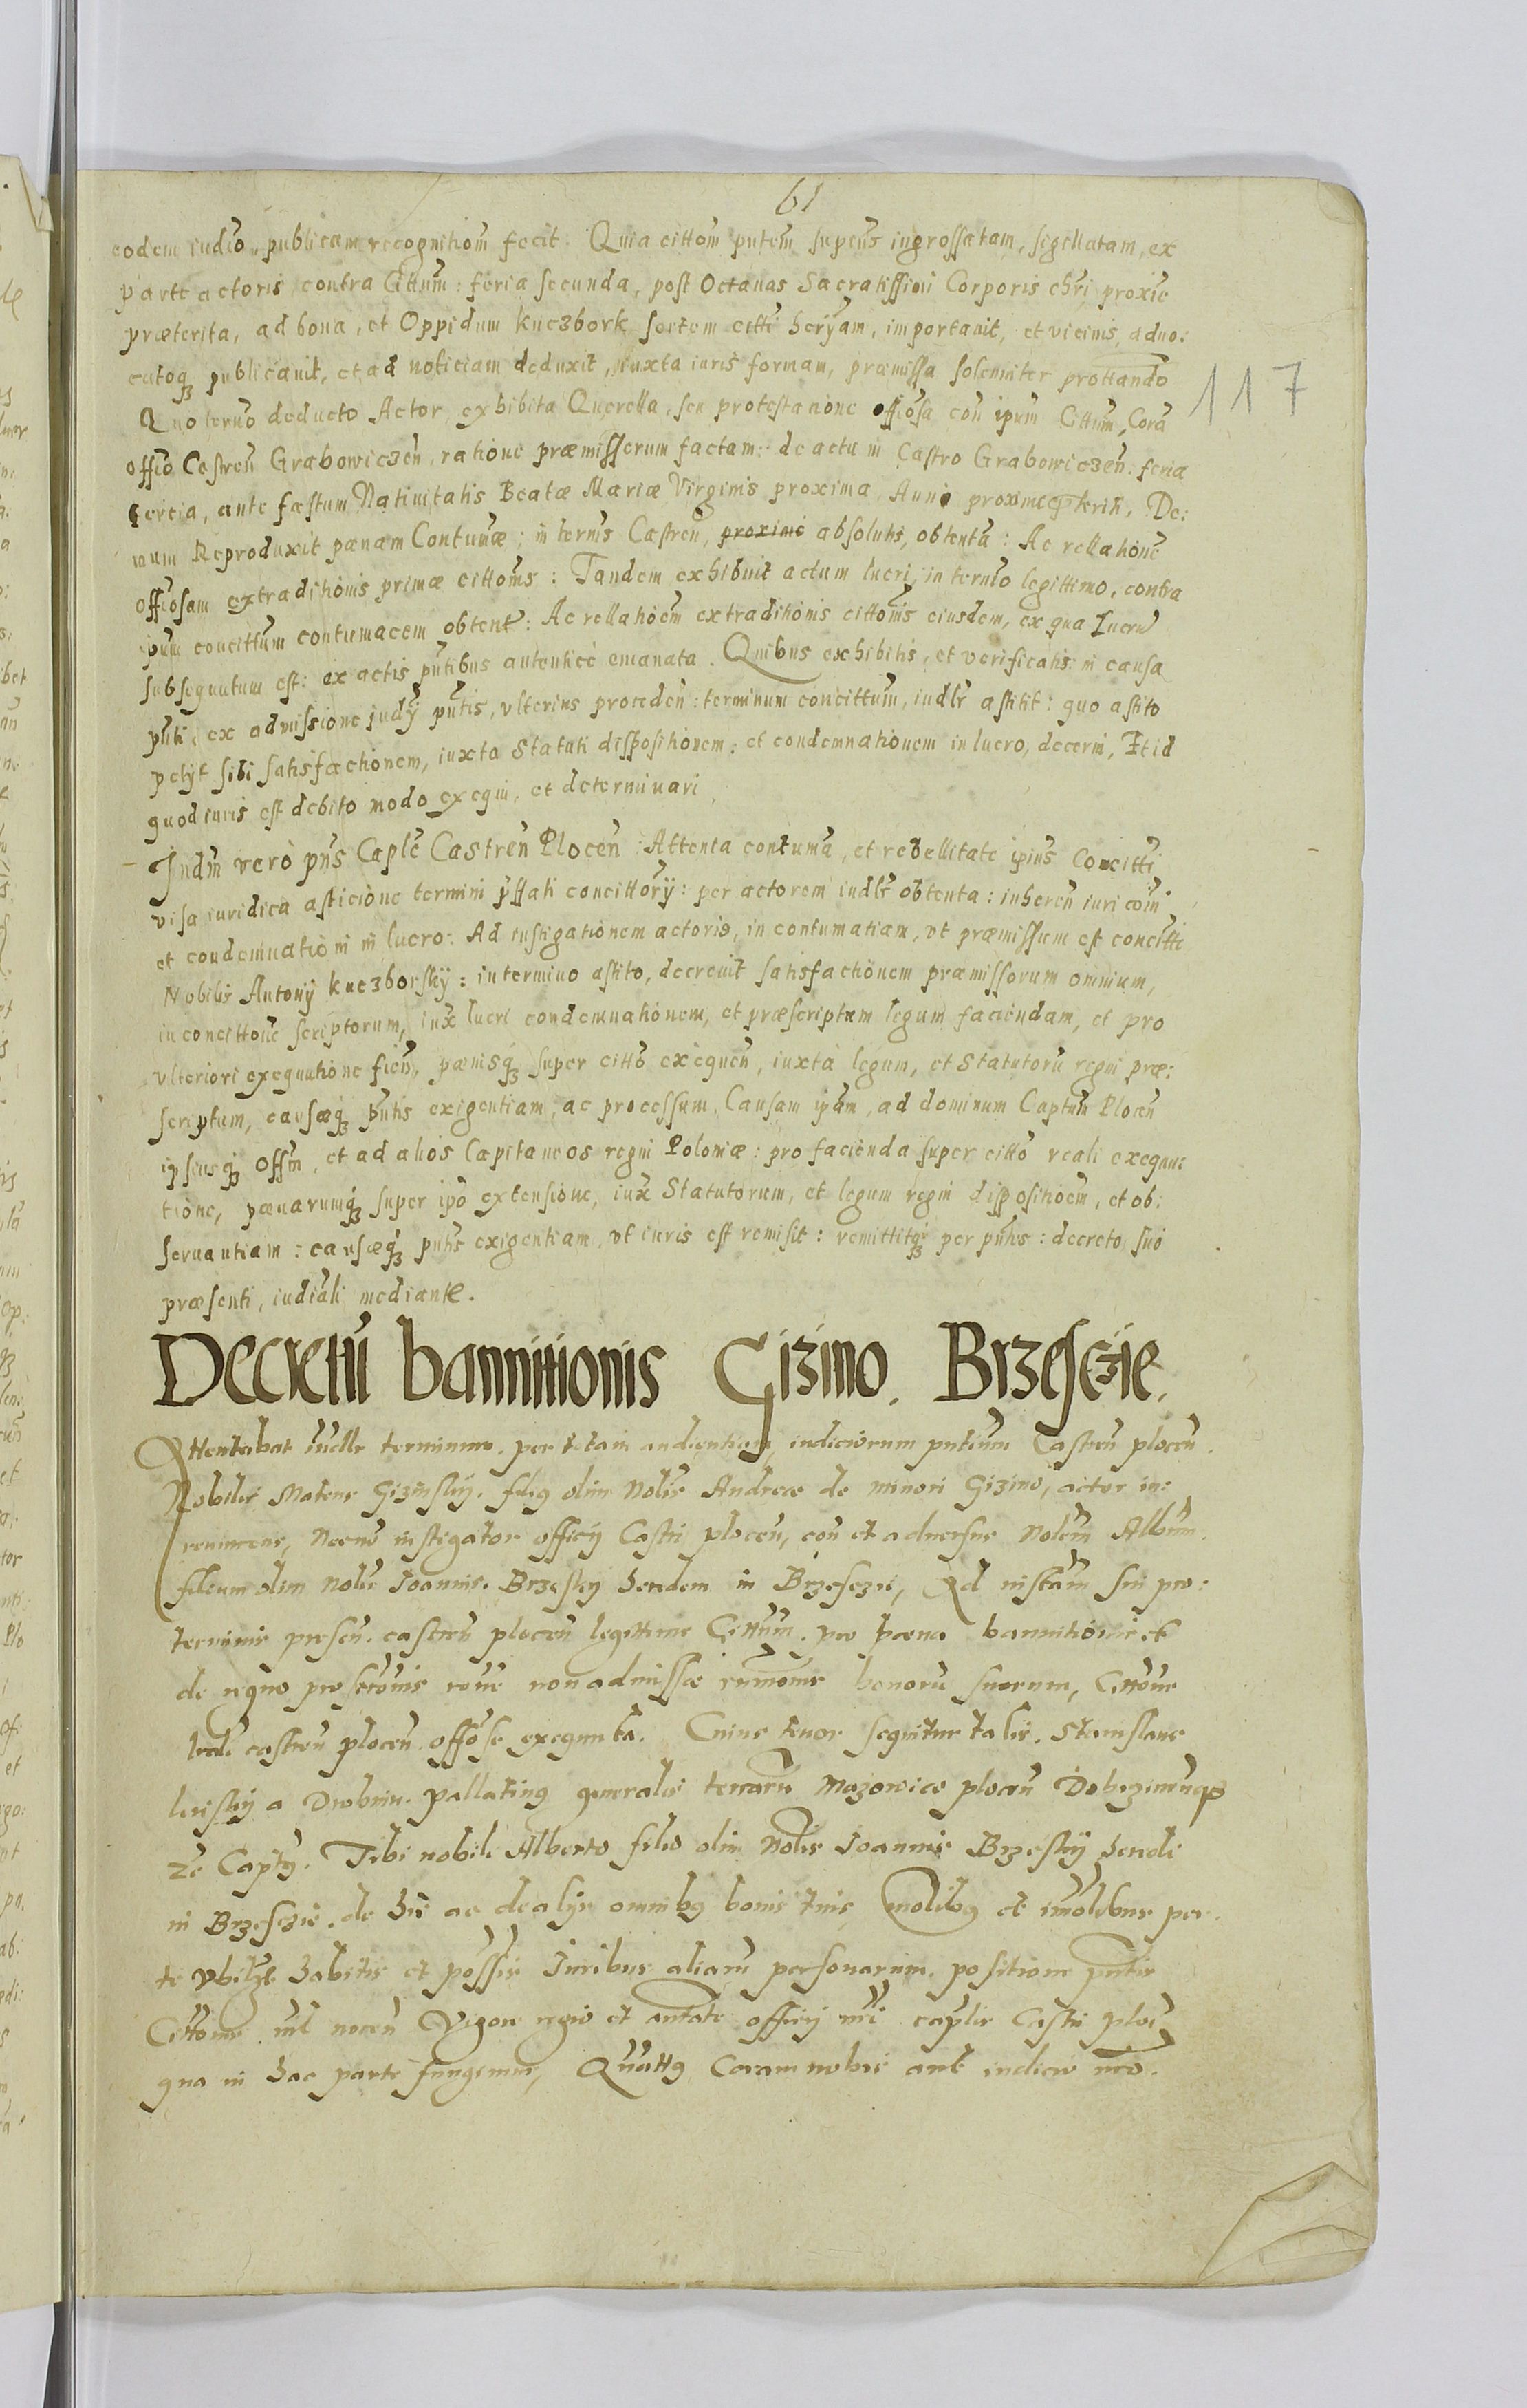 61
eodem iudio publicam recognitiom fecit. Quia cittom putem supeius ingrossatam, sigillatam, ex
parte actoris contra Cittum: feria secunda, post Octauas Sacratissimi Corporis chri proxie
præterita, ad bona, et Oppidum kuczbork sortem citti heryam, importauit, et vicinis, aduo:
catoqz publicauit, et ad noticiam deduxit, iuxta iuris formam, præmissa solemniter prottando
117
Quo termo deducto Actor exhibita Querella, seu protestacione offiosa con ipum Cittum, Cora
offio Castren Grabowieczen, ratione præmissorum factam: de actu in Castro Grabowieczen: feria
tercia, ante fæstum Natiuitatis Beatæ Mariæ Virginis proxima Anni proxime pterih, De:
mum Reproduxit pænam Contumæ; in termis Castren, proxime absolutis, obtenta: Ac rellatione
offiosam extraditionis primæ cittoms: Tandem exhibuit actum lucri, in termio legittimo, contra
ipum concittum contumacem obtent: Ac rellahoem extraditionis cittomis eiusdem, ex qua lucru
subsequutum est: ex actis pntibus autentice emanata. Quibus exhibitis, et verificatis in causa
pnti, ex admissione judÿ pntis, vlterius proceden: terminum concittum, iudlr astitit: quo astito
petÿt sibi satisfactionem, iuxta Statuti dispositionem: et condemnationem in lucro, decerni, Et id
quod iuris est debito modo exequi, et determinari
Judm vero pns Caple Castren Plocen: Attenta contuma, et rebellitate ipius Concitti
visa iuridica asticione termini pffati concittorÿ: per actorem iudlr obtenta: inheren iuri coin
et condemnationi in lucro: Ad instigationem actoris, in contumatiam, vt præmissum est concitti
Nobilis Antonij kuczborskÿ: in termino astito, decreuit satisfactionem præmissorum omnium,
in concittone scriptorum, iux lucri condemnationem, et præscriptum legum faciendam, et pro
vlteriori exequutione fien, pænisqz super citto exequen, iuxta legum, et Statutoru regni præ:
scriptum, causæqz pntis exigentiam, ac processum, Causam ipam, ad dominum Captum Plocen
ipsiusqz offm, et ad alios Capitaneos regni Poloniæ: pro facienda super citto reali exequu:
tione, pænarumqz super ipo extensione, iux Statutorum, et legum regni dispositioem, et ob:
seruantiam: causæqz pntis exigentiam, vt iuris est remisit: remittitqz per pntes: decreto suo
præsenti, iudiali mediante.
Decretu bannitionis Gizino. Brzesczie.
Attentabat iudlr terminum, per totam audientiam, iudiciorum putium Castren plocen.
Nobilis Mateus Gizinskÿ. filiq olim Nolis Andreæ de minori Gizino, actor in:
reuincens, Necno instigator officÿ Castri plocen, con et aduersus Nolem Album.
filium olim Nolis Joannis. Brzeskÿ heredem in Brzesczie, Ad instam sui pro:
terminis presen. castren plocen legittime Cittum. pro pæna bannitionis et
de regno non admissæ bonoru suorum, Cittone
castren plocen offose exequuta. Cuius tenor sequitur talis. Stanislaus
a Drobnin. Pallatinq generalis terraru Mazowiæ plocen Dobrzinenqz
Captq. Tibi nobili Alberto filio olim Nolis Joannis Brzeskÿ heredi
in Brzesczie. de his ac de alijs omnibq bonis tuis, molibq et imolibus per
te vbilzt habitis et possis Juribus aliaru personarum. positione pntis
Cittonis nil nocen Vigore regio et autate officÿ mei caplis Castri ploc
qua in hac parte fungimur, Quattq Coram nobis aut iudicio nro.